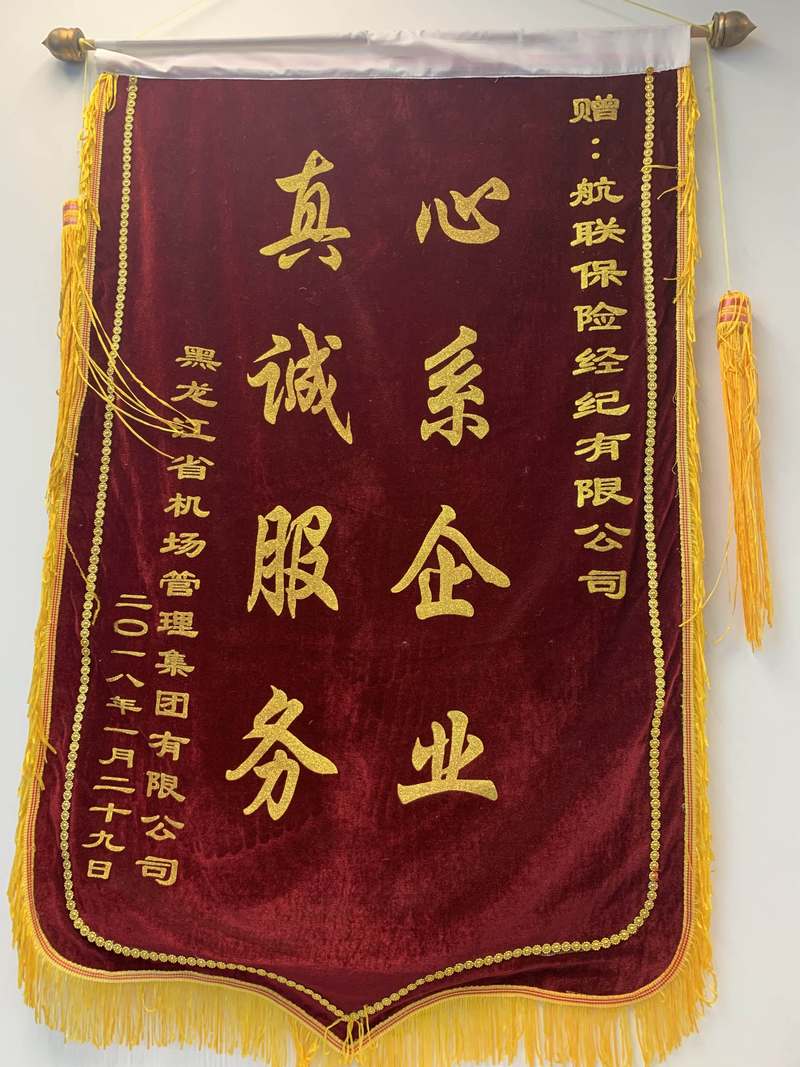 赠：航联保险经纪有限公司
心系企业
真诚服务
黑龙江省机场管理集团有限公司
二〇一八年一月二十九日